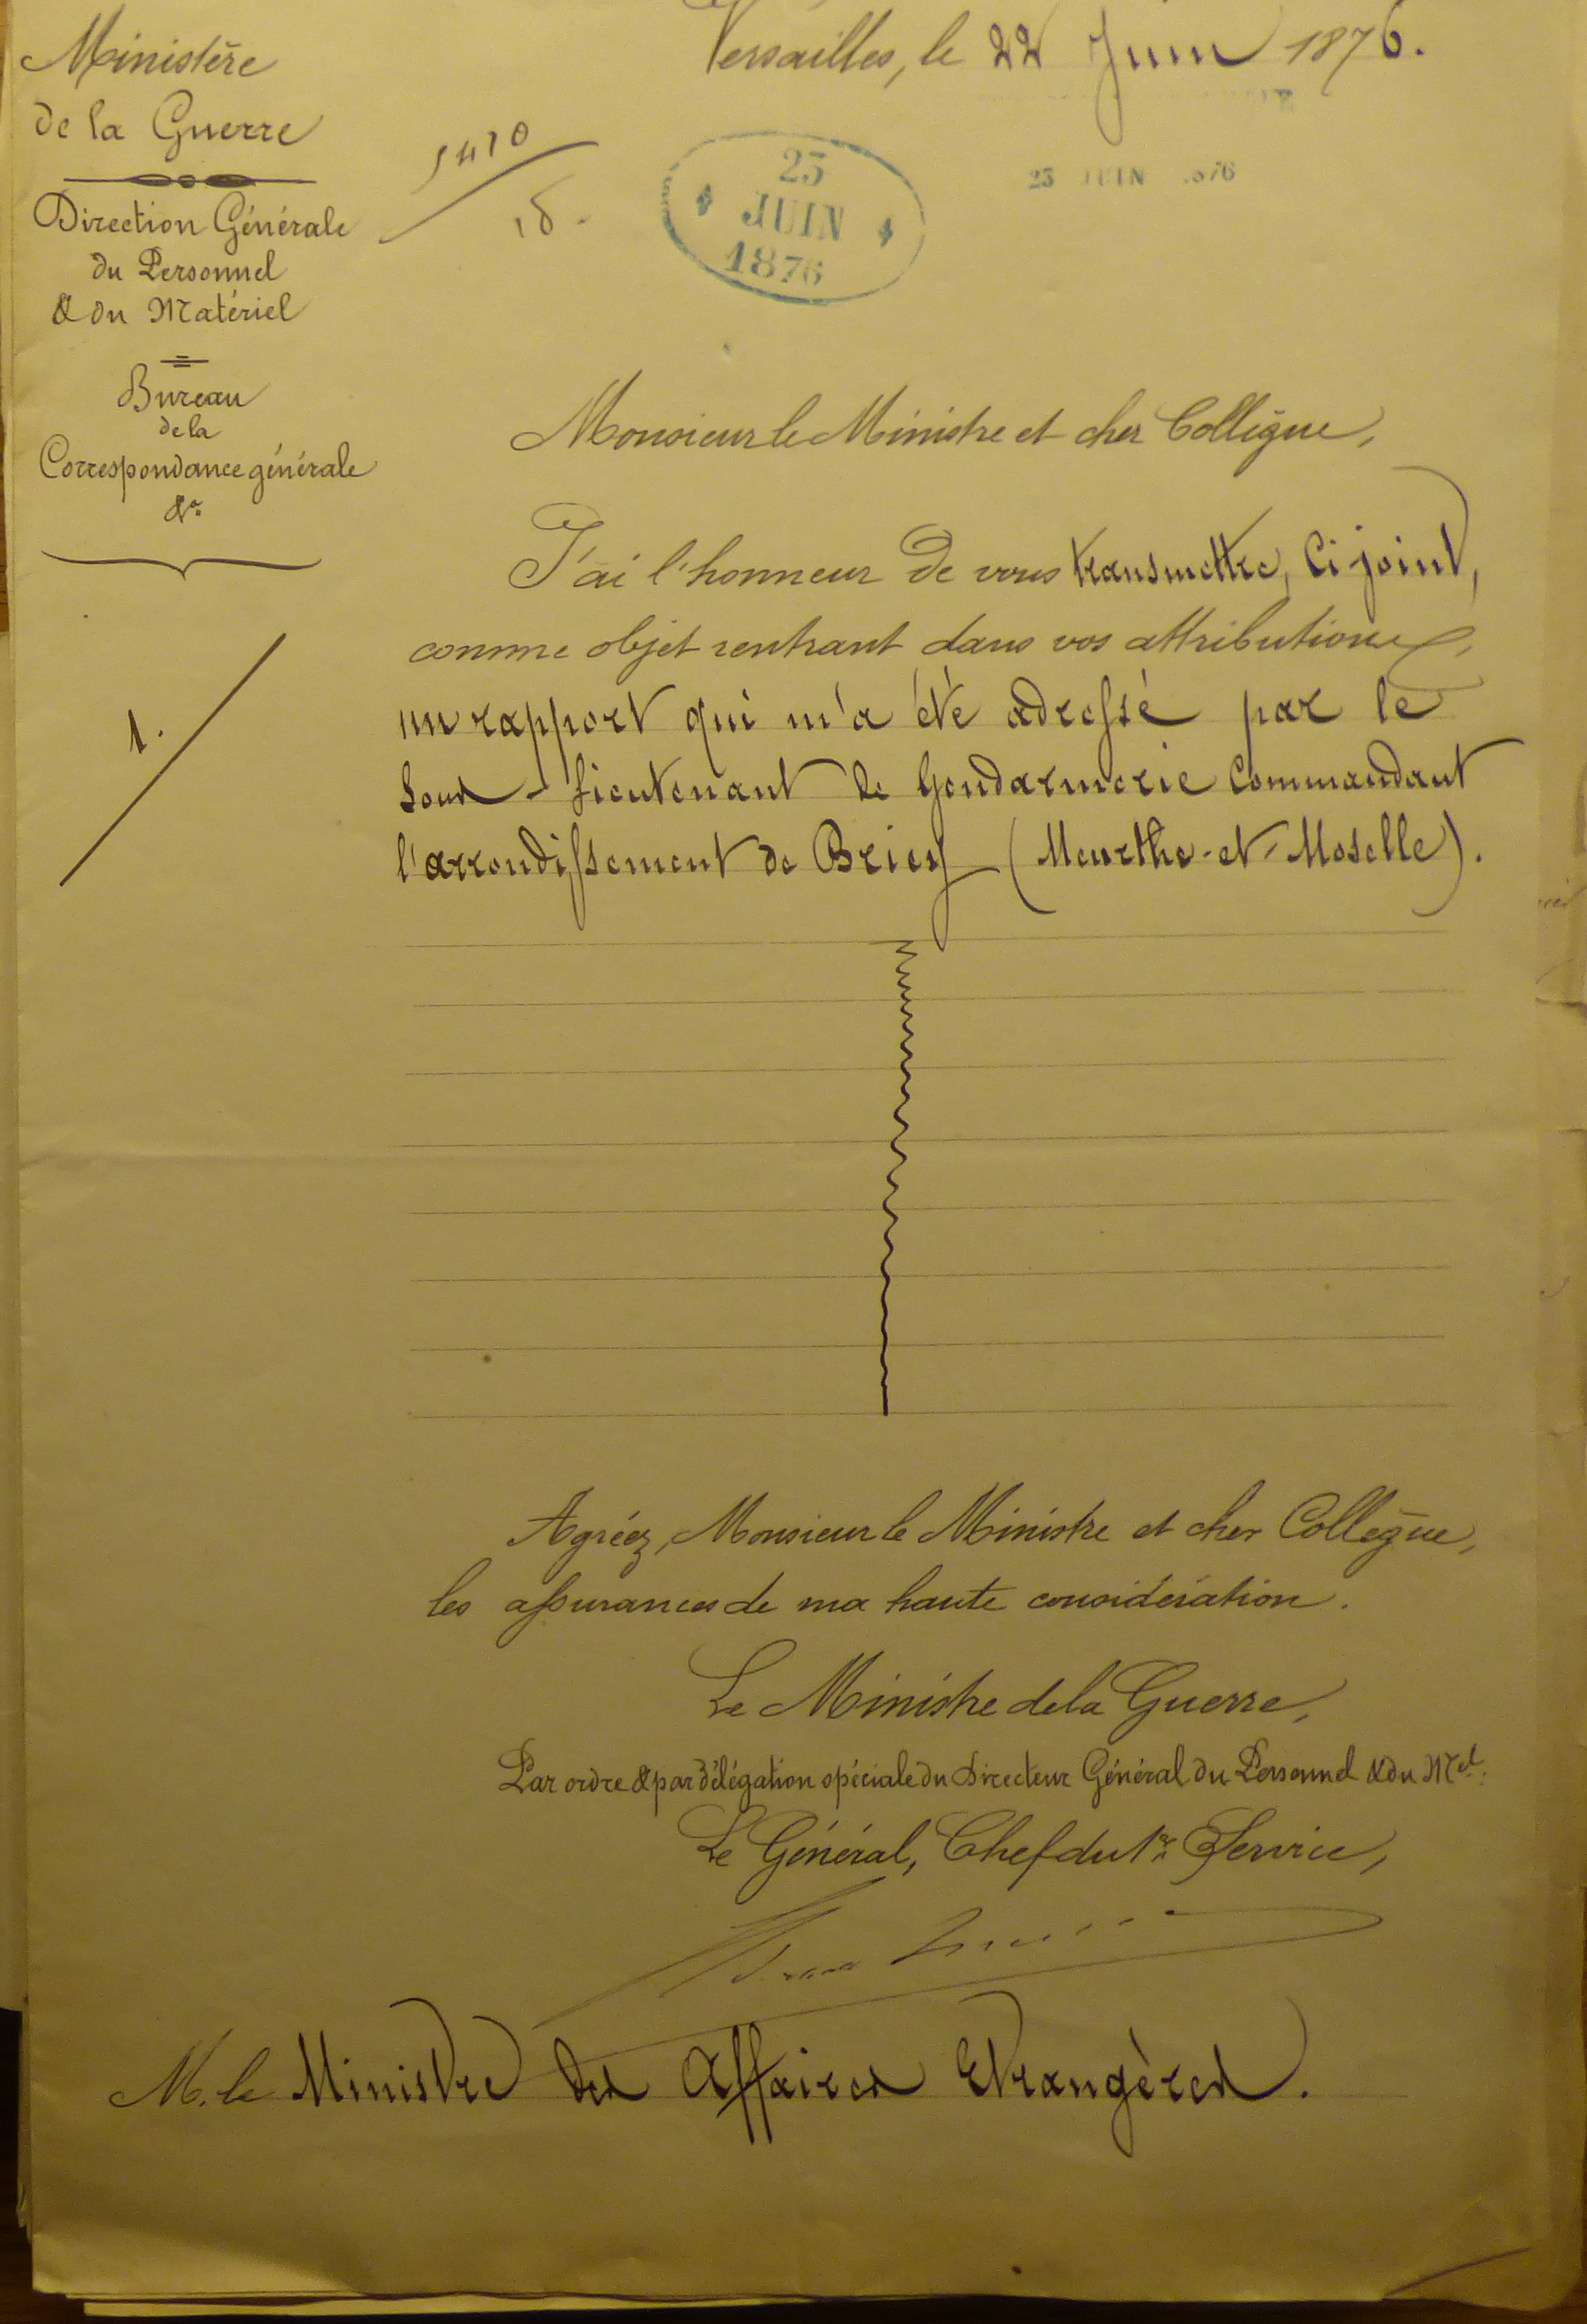 Ministère
de la Guerre
Direction Générale
du Personnel
& du Matériel
Bureau
de la
Correspondance générale
&a
1.
Versailles, le 22 Juin 1876.
25
JUIN
1876
23 JUIN 1876
Monsieur le Ministre et cher Collègue,
J'ai l'honneur de vous transmettre, Ci-joint,
comme objet rentrant dans vos attributions,
un rapport qui m'a été adressé par le
Sous-Lieutenant de Gendarmerie Commandant
l'arrondissement de Briey (Meurthe-et-Moselle).
Agréez, Monsieur le Ministre et cher Collègue,
les assurances de ma haute considération.
Le Ministre de la Guerre,
Par ordre & par délégation spéciale du Directeur Général du Personnel & du Mel:
Le Général, Chef du 1er Service,
M. le Ministre des Affaires Etrangères.